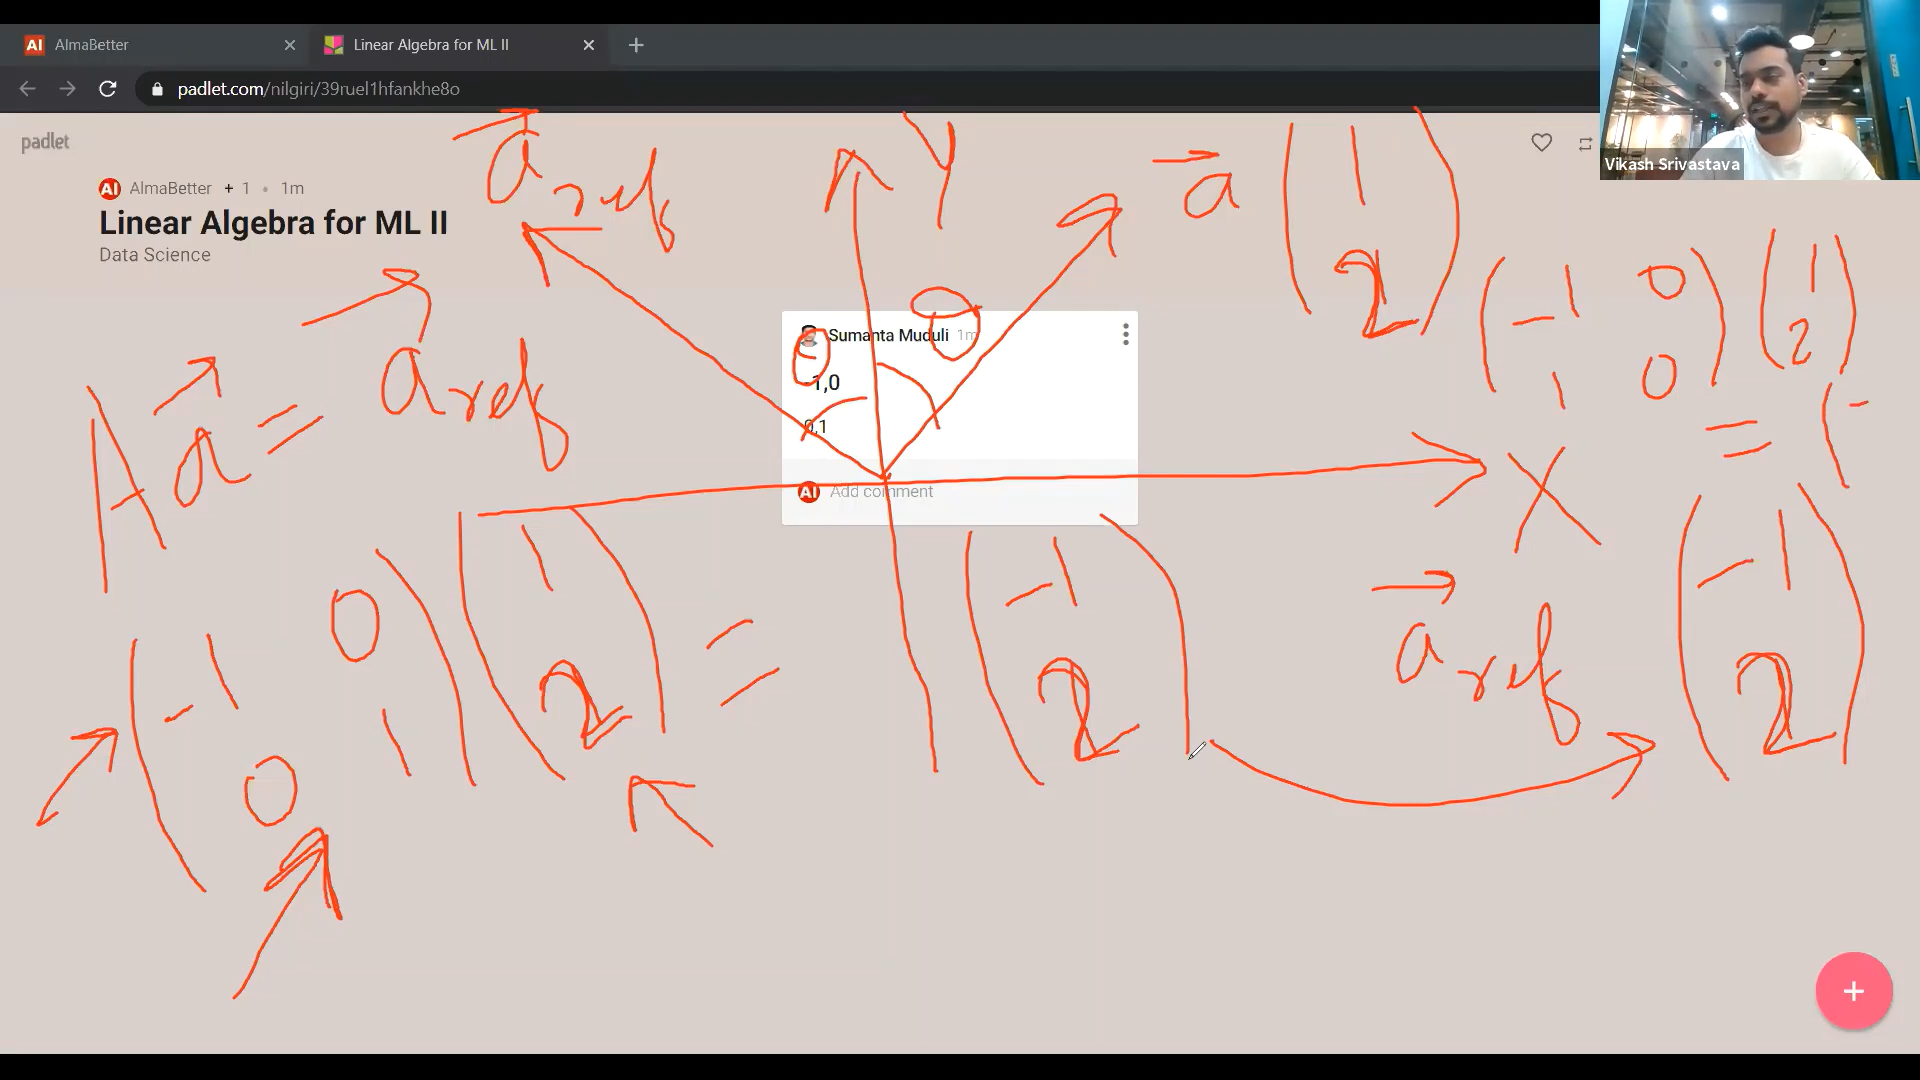 AlmaBetter
Linear Algebra for ML II
padlet.com/nilgiri/39ruel1hfankhe8o
padlet
AlmaBetter + 1 • 1m
Linear Algebra for ML II
Data Science
Vikash Srivastava
a ref
Y
a ( 1
2 )
θ
θ
Sumanta Muduli 1m
-1,0
0,1
Add comment
( -1 0
1 0 ) ( 1
2 )
= ( -
A a = a ref
X
( -1 0
0 1 ) ( 1
2 ) = ( -1
2 )
a ref ( -1
2 )